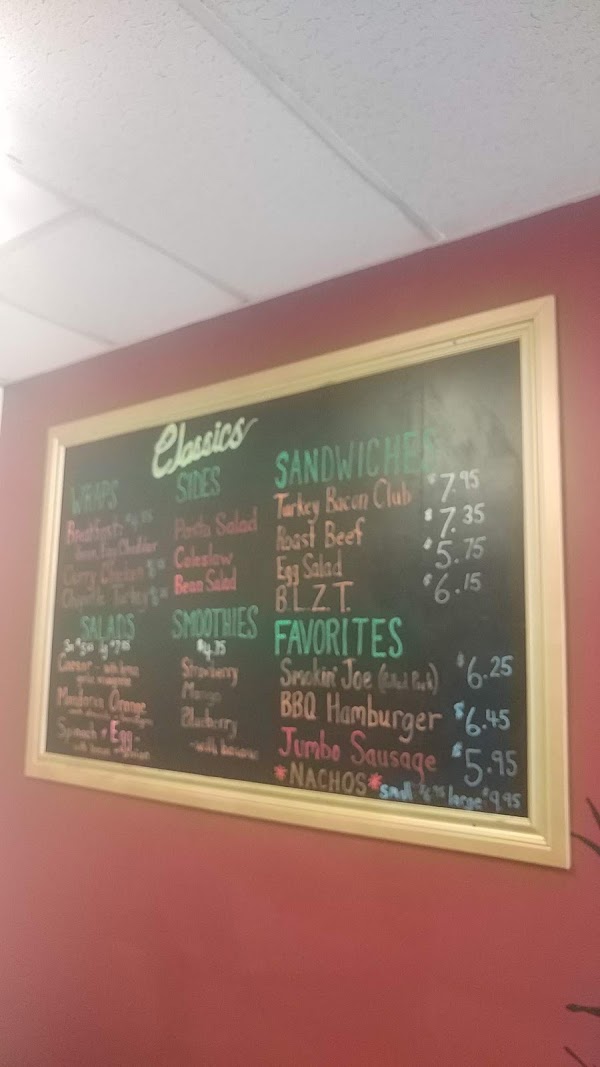 Classics
WRAPS
Breakfast:
Bacon, Egg, Cheddar
Curry Chicken
Chipotle Turkey
SIDES
Pasta Salad
Coleslaw
Bean Salad
SANDWICHES
Turkey Bacon Club $7.95
Roast Beef $7.35
Egg Salad $5.75
B.L.Z.T. $6.15
SALADS
Caesar - with
Mandarin Orange
Spinach & Egg -
SMOOTHIES
Strawberry
Mango
Blueberry
- with banana
FAVORITES
Smokin' Joe (Pulled Pork) $6.25
BBQ Hamburger $6.45
Jumbo Sausage $5.95
*NACHOS* small large $9.95